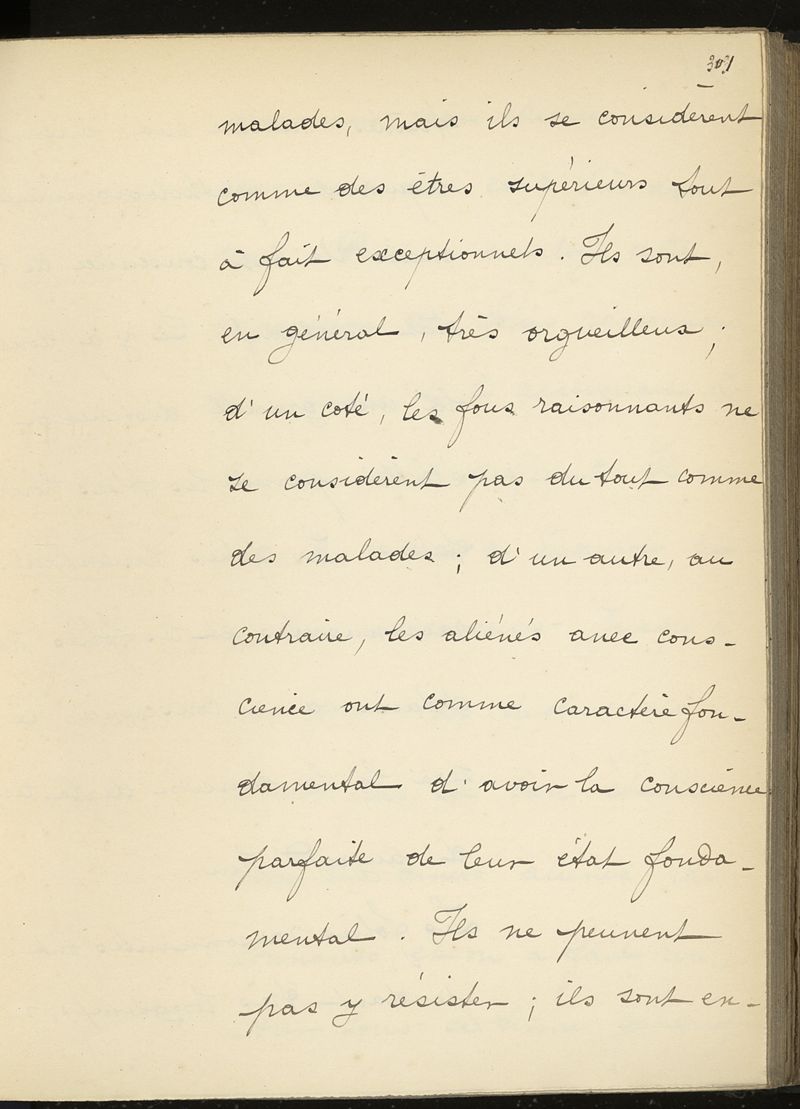 301
malades, mais ils se considèrent
comme des êtres supérieurs tout
à fait exceptionnels. Ils sont,
en général, très orgueilleux;
d'un coté, les fous raisonnants ne
se considèrent pas du tout comme
des malades; d'un autre, au
contraire, les aliénés avec cons-
cience ont comme caractère fon-
damental d'avoir la conscience
parfaite de leur état fonda-
mental. Ils ne peuvent
pas y résister; ils sont en-